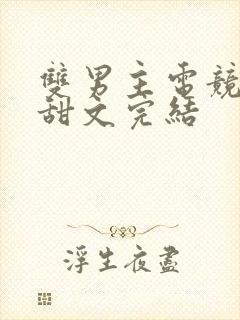 雙男主電競
甜文完結
浮生夜盡